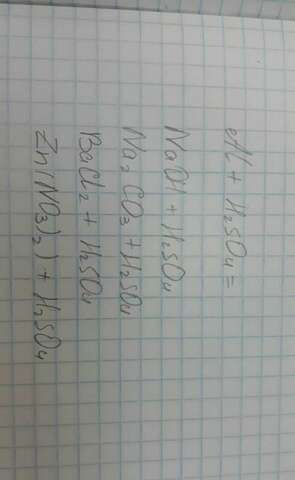 Al + H₂SO₄ =
NaOH + H₂SO₄
Na₂CO₃ + H₂SO₄
BaCl₂ + H₂SO₄
Zn(NO₃)₂) + H₂SO₄